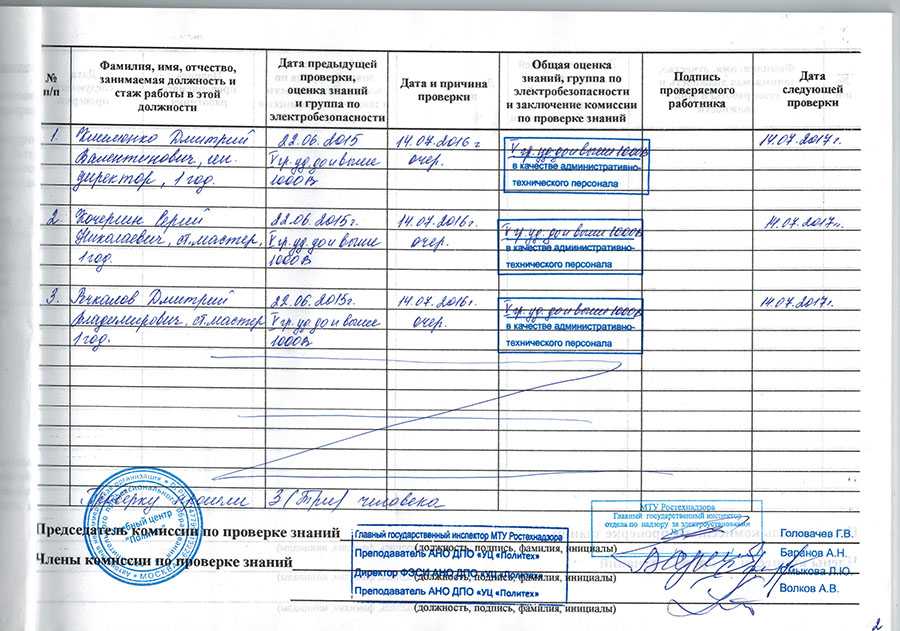 № п/п
Фамилия, имя, отчество, занимаемая должность и стаж работы в этой должности
Дата предыдущей проверки, оценка знаний и группа по электробезопасности
Дата и причина проверки
Общая оценка знаний, группа по электробезопасности и заключение комиссии по проверке знаний
Подпись проверяемого работника
Дата следующей проверки
1. Дмитрий 22.06.2015 14.07.2016 г V гр. уд. до и выше 1000 В 14.07.2017 г.
Валентинович, ген. V гр. уд. до и выше очер. в качестве административно-
директор, 1 год. 1000 В технического персонала
2. Кочергин 22.06.2015 г. 14.07.2016 г. V гр. уд. до и выше 1000 В 14.07.2017 г.
Николаевич, ст. мастер, V гр. уд. до и выше очер. в качестве административно-
1 год 1000 В технического персонала
3. Дмитрий 22.06.2015 г. 14.07.2016 г. V гр. уд. до и выше 1000 В 14.07.2017 г.
Владимирович, ст. мастер V гр. уд. до и выше очер. в качестве административно-
1 год. 1000 В технического персонала
Проверку прошли 3 (Три) человека
МТУ Ростехнадзора
Главный государственный инспектор
отдела по надзору за электроустановками
Председатель комиссии по проверке знаний Главный государственный инспектор МТУ Ростехнадзора Головачев Г.В.
(должность, подпись, фамилия, инициалы)
Преподаватель АНО ДПО «УЦ «Политех» Баранов А.Н.
Члены комиссии по проверке знаний
Директор ФЭСИ АНО ДПО «УЦ «Политех» Л.Ю.
(должность, подпись, фамилия, инициалы)
Преподаватель АНО ДПО «УЦ «Политех» Волков А.В.
(должность, подпись, фамилия, инициалы)
Учебный центр
"Политех"
МОСКВА
2